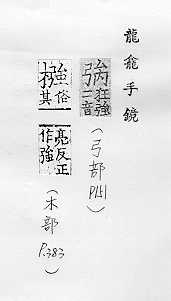 龍龕手鏡
狂強二音
(弓部 P151)
俗其亮反正作強
(木部 P.383)